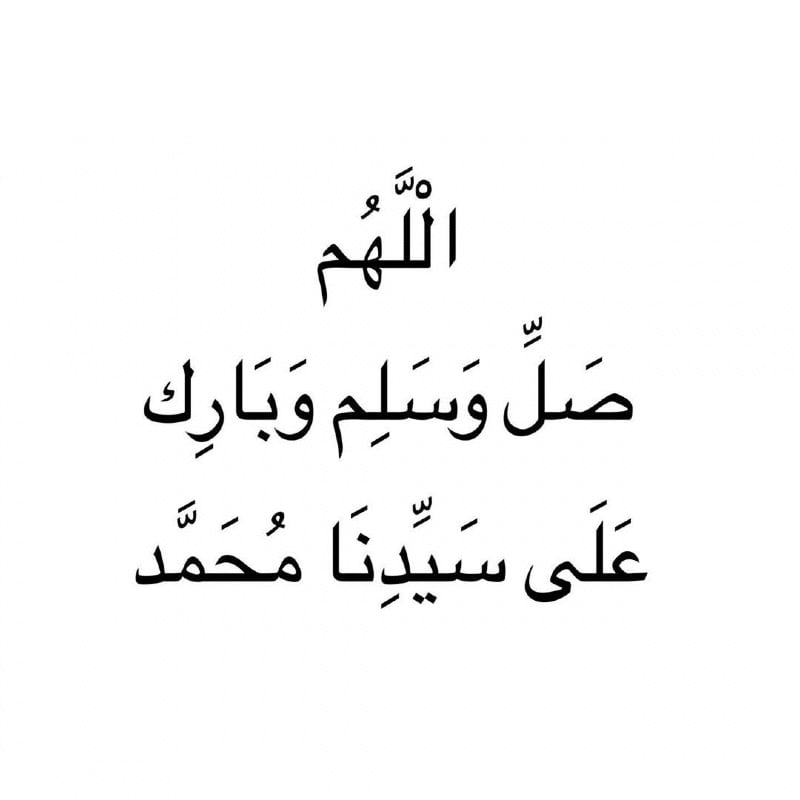 الْلَّهُم
صَلِّ وَسَلِم وَبَارِك
عَلَى سَيِّدِنَا مُحَمَّد